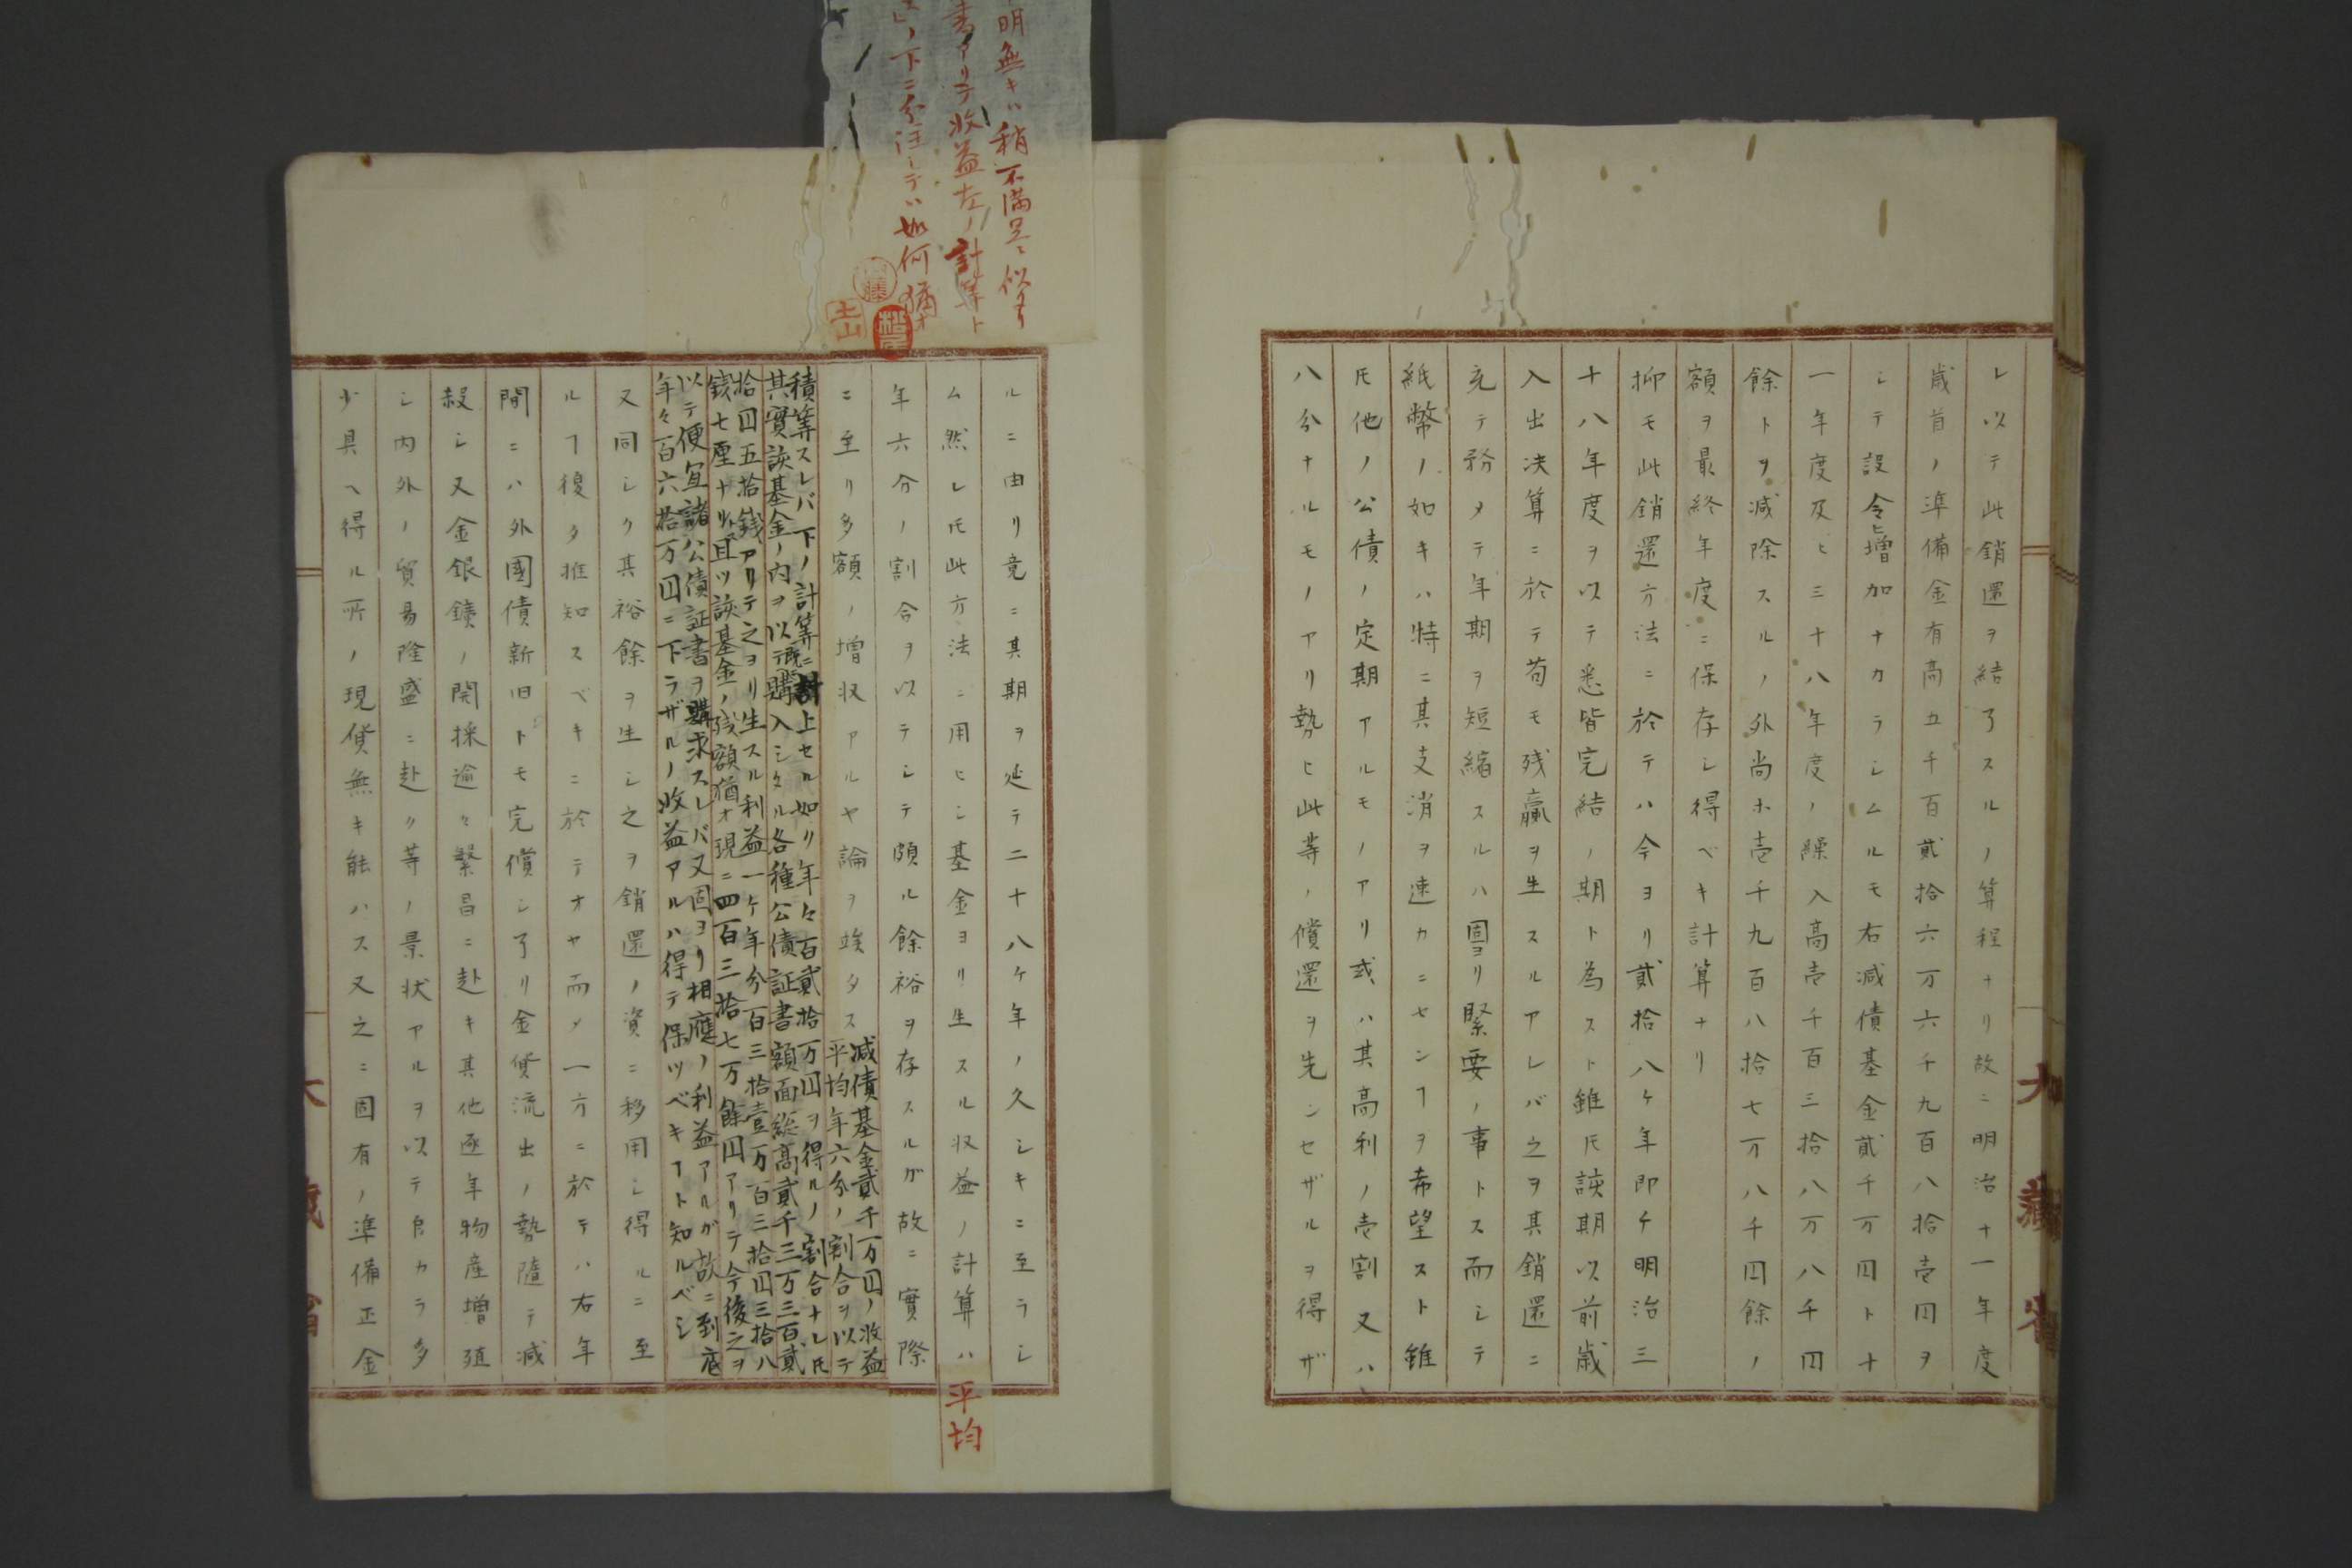 レ以テ此銷還ヲ結了スルノ算程ナリ故ニ明治十一年度
歳首ノ準備金有高五千百貳拾六万六千九百八拾壱円ヲ
シテ設令ヒ増加ナカラシムルモ右減債基金貳千万円ト十
一年度及ヒ三十八年度ノ繰入高壱千百三拾八万八千円
餘トヲ減除スルノ外尚ホ壱千九百八拾七万八千円餘ノ
額ヲ最終年度ニ保存シ得ベキ計算ナリ
抑モ此銷還方法ニ於テハ今ヨリ貳拾八ケ年即チ明治三
十八年度ヲ以テ悉皆完結ノ期ト為スト雖𪜈該期以前歳
入出决算ニ於テ苟モ残贏ヲ生スルアレバ之ヲ其銷還ニ
充テ務メテ年期ヲ短縮スルハ固ヨリ緊要ノ事トス而シテ
紙幣ノ如キハ特ニ其支消ヲ速カニセンヿヲ希望スト雖
𪜈他ノ公債ノ定期アルモノアリ或ハ其高利ノ壱割又ハ
八分ナルモノアリ勢ヒ此等ノ償還ヲ先ンセザルヲ得ザ
大藏省
明無キハ稍不満足ニ似タリ
書アリテ收益左ノ計算ト
ノ下ニ分注シテハ如何猶オ
ルニ由リ竟ニ其期ヲ延テ二十八ケ年ノ久シキニ至ラシ
ム然レ𪜈此方法ニ用ヒシ基金ヨリ生スル収益ノ計算ハ平均
年六分ノ割合ヲ以テシテ頗ル餘裕ヲ存スルガ故ニ實際
ニ至リ多額ノ増収アルヤ論ヲ竢タス
減債基金貳千万円ノ收益
平均年六分ノ割合ヲ以テ
積算スレバ下ノ計算ニ計上セル如リ年々百貳拾万円ヲ得ルノ割合ナレ𪜈
其實該基金ノ内ヲ以テ既ニ購入シタル各種公債証書額面総高貳千三万三百貳
拾四五拾錢アリテ之ヨリ生スル利益一ケ年分百三拾壹万百三拾円三拾八
錢七厘ナリ且ツ該基金ノ残額猶オ現ニ四百三拾七万餘円アリテ今後之ヲ
以テ便宜諸公債証書ヲ購求スレバ又固ヨリ相應ノ利益アルガ故ニ到底
年々百六拾万円ニ下ラザルノ收益アルハ得テ保ツベキヿト知ルベシ
又同シク其裕餘ヲ生シ之ヲ銷還ノ資ニ移用シ得ルニ至
ルヿ復タ推知スベキニ於テオヤ而メ一方ニ於テハ右年
間ニハ外國債新旧トモ完償シ了リ金貨流出ノ勢随テ減
殺シ又金銀鑛ノ開採逾々繁昌ニ赴キ其他逐年物産増殖
シ内外ノ貿易隆盛ニ赴ク等ノ景状アルヲ以テ自カラ多
少具ヘ得ル所ノ現貨無キ能ハス又之ニ固有ノ準備正金
大藏省